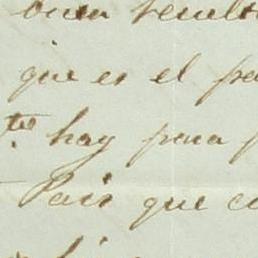 buen result
que es el pa
to hay para p
Pais que co